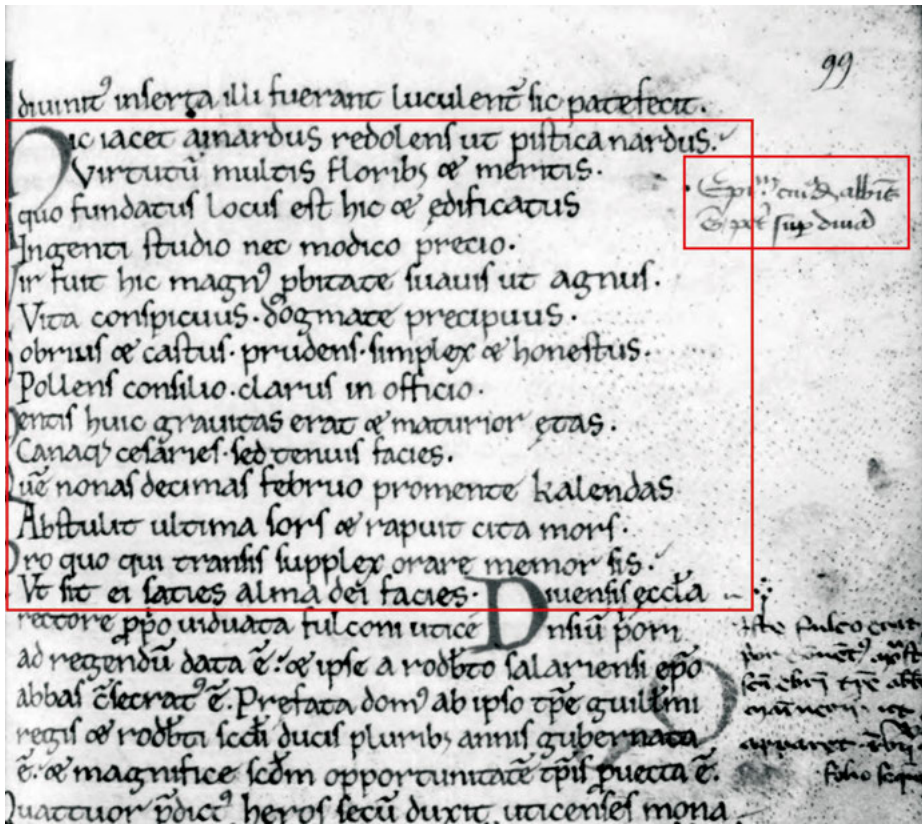 99
diuinitꝰ inserta illi fuerant luculent̄ sic patefecit.
Hic iacet ainardus redolens ut pistica nardus.
Virtutū multis florib; & meritis.
A quo fundatus locus est hic & ędificatus
Ingenti studio nec modico precio.
Vir fuit hic magnꝰ ꝓbitate suauis ut agnus.
Vita conspicuus. dogmate precipuus.
Sobrius & castus. prudens. simplex & honestus.
Pollens consilio. clarus in officio.
Mentis huic grauitas erat & maturior ętas.
Canaq; cesaries. sed tenuis facies.
Quē nonas decimas februo promente kalendas
Abstulit ultima sors & rapuit cita mors.
Pro quo qui transis supplex orare memor sis.
Vt sit ei saties alma dei facies. Diuensis ęccl̄a
rectore ꝓp̄o uiduata fulconi uticē nsiū p̄ori
ad regendū data ē. & ipse a rodb̄to salariensi ep̄o
abbas c̄secratꝰ ē. Prefata domꝰ ab ipso tp̄e guill̄mi
regis & rodb̄ti sc̄di ducis plurib; annis gubernata
ē. & magnifice sc̄dm opportunitatē tp̄is ꝓuecta ē.
Quattuor p̄dictꝰ heros secū duxit uticenses mona
sup diuā
Iste fulco erat
folio seq